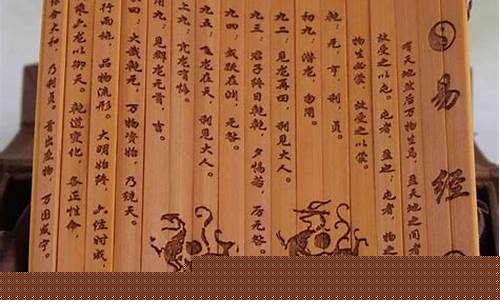 易经
有天地然后万物生焉，盈天地之间者
故受之以屯。屯者，盈也。屯者，物之
物生必蒙，故受之以蒙。
乾，元，亨，利，贞。
初九，潜龙，勿用。
九二，见龙再田，利见大人。
九三，君子终日乾乾，夕惕若，厉无咎。
九四，或跃在渊，无咎。
九五，飞龙在天，利见大人。
上九，亢龙有悔。
用九，见群龙无首，吉。
曰：大哉乾元，万物资始，乃统天。
行雨施，品物流形。大明始终，六位时成，
乘六龙以御天。乾道变化，各正性命，
合大和，乃利贞。首出庶物，万国咸宁。